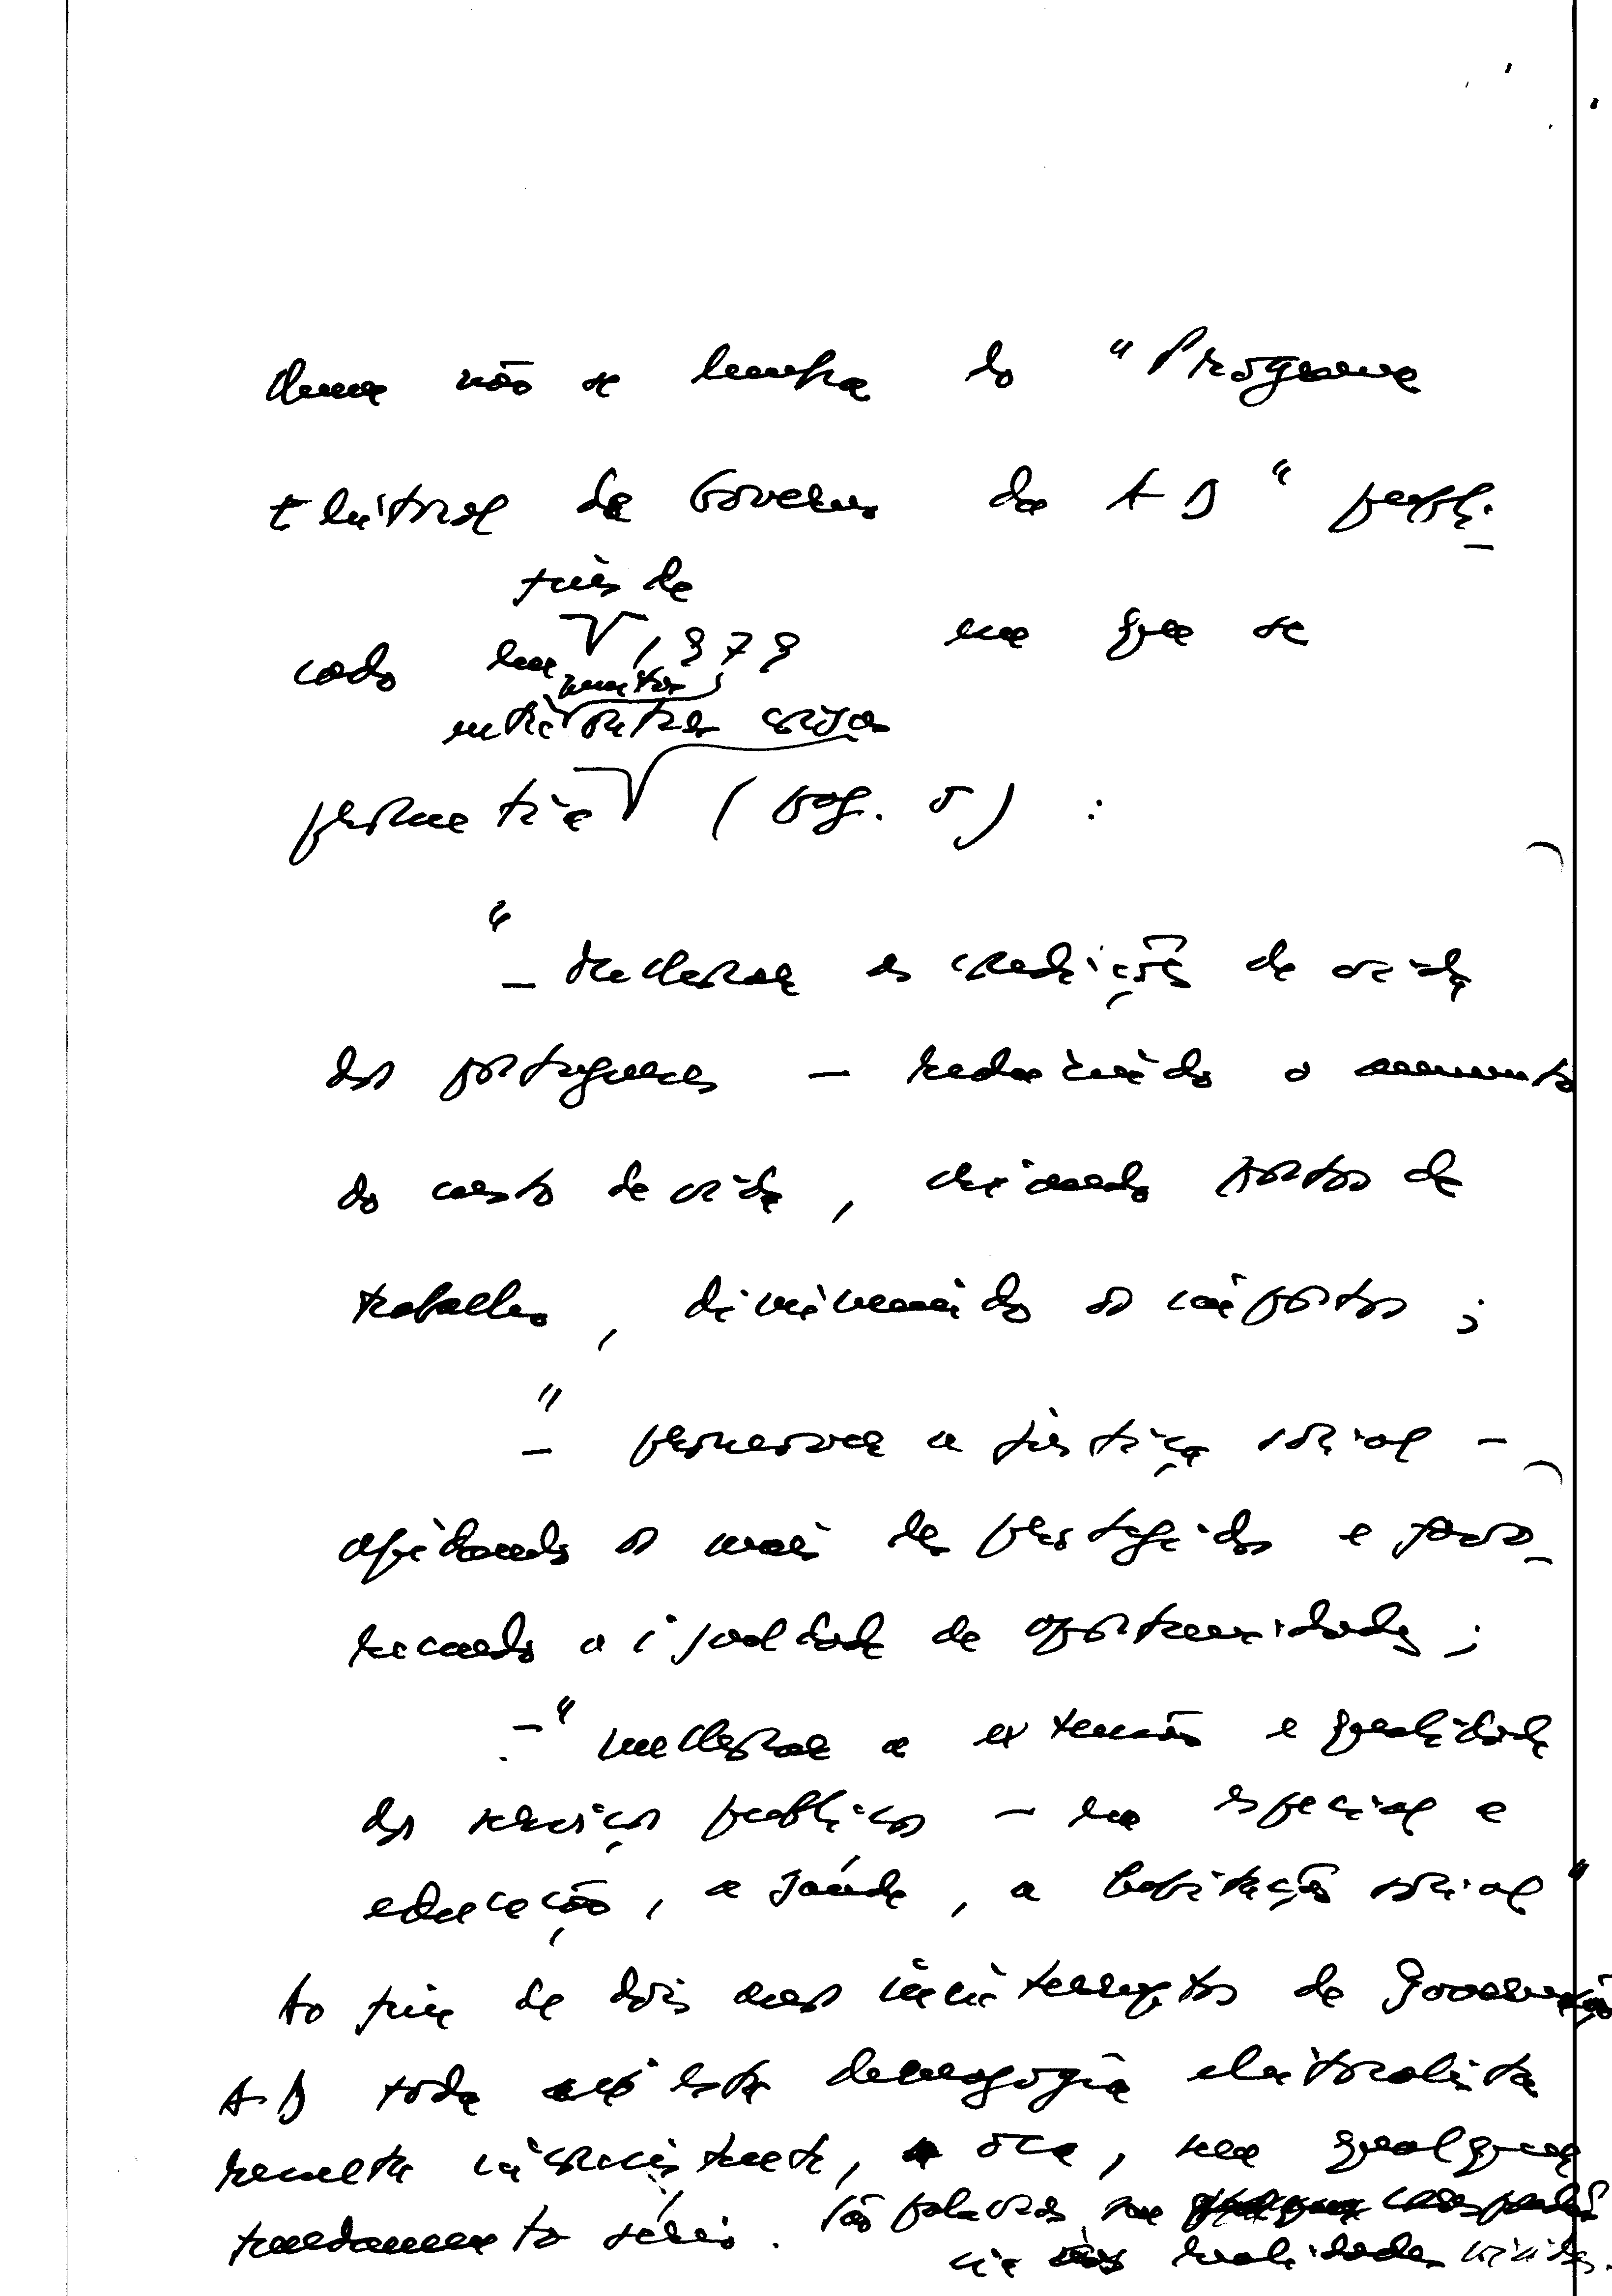 não se lembra do "Programa
Eleitoral de Governo da AD" publi-
fins de
cado em 1979 em que se
muitas
entre outras coisas
prometia (pag. 5) :
"- melhorar as condições de vida
dos portugueses - reduzindo o aumento
do custo de vida, criando postos de
trabalho, diminuindo os impostos ;
"- promover a justiça social -
apoiando os mais desprotegidos e favo-
recendo a igualdade de oportunidades ;
-" melhorar a extensão e qualidade
dos serviços publicos - em especial a
educação, a saúde, a habitação social"
Ao fim de dois anos ininterruptos de governação
AD toda esta demagogia eleitoralista
resulta inconsistente, oca, sem qualquer
fundamento sério. São palavras sem
realidades vividas.